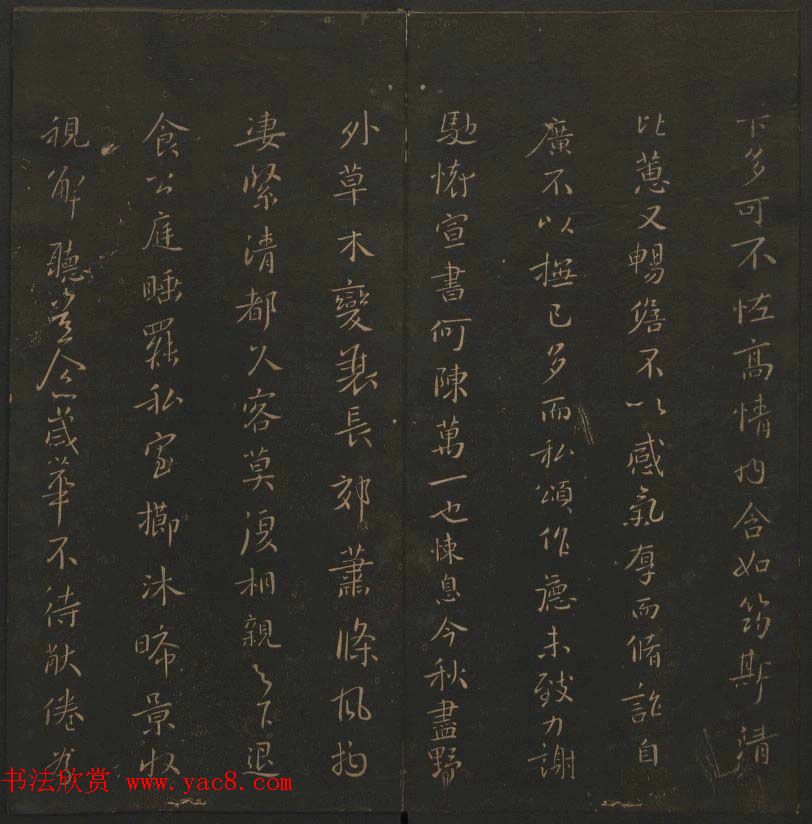 下多可不怪高情内含如筠斯清
比蕙又暢啓不以感氣厚而脩詐自
廣不以撫已多而私頌作德未致力謝
馳情宣書何陳萬一也悚息今秋盡野
外草木變衰長郊蕭條風物
凄緊清都久客莫復相親之下退
食公庭睡罷私室擲沐晞景收
視解聽念歲華不待猷倦
书法欣赏 www.yac8.com